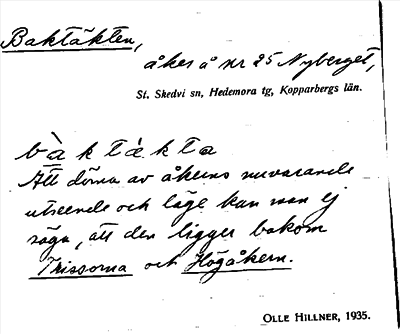 Baktäkten,
åker å nr 25 Nyberget,
St. Skedvi sn, Hedemora tg, Kopparbergs län.
bàktákta
Att döma av åkerns nuvarande
utseende och läge kan man ej
säga, att den ligger bakom
Trissorna och Högåkern.
OLLE HILLNER, 1935.